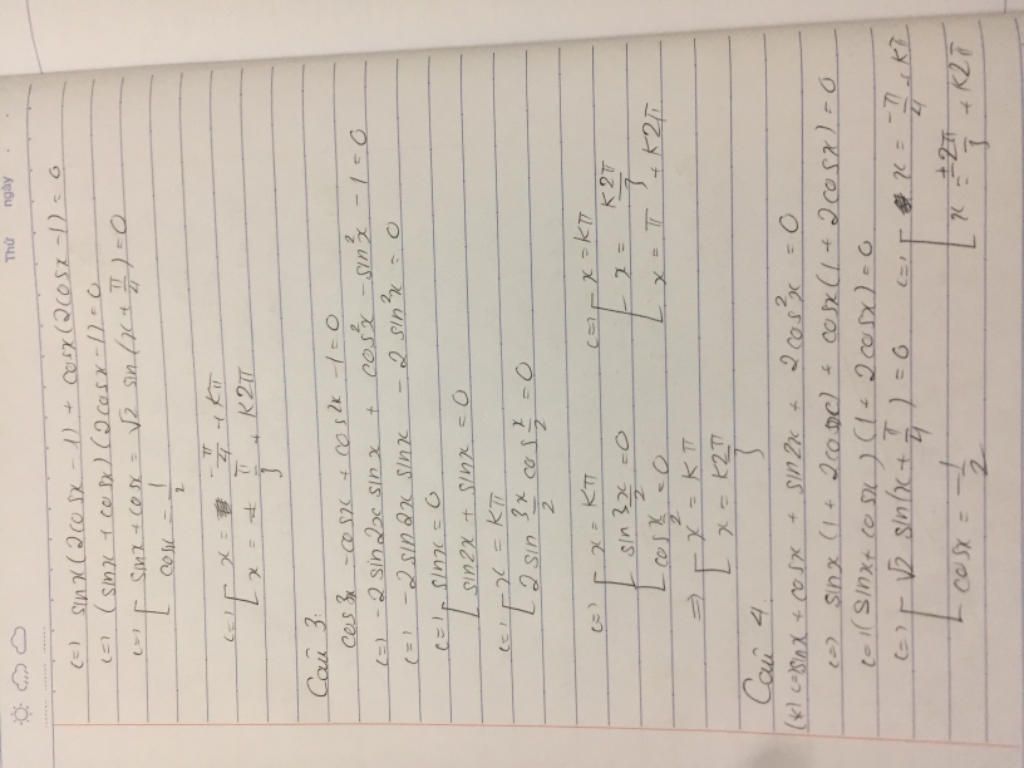 Thứ ngày
(=) sinx(2cosx-1) + cosx(2cosx-1) = 0
(=) (sinx + cosx)(2cosx-1) = 0
(=) [ sinx + cosx = √2 sin(x + π/4) = 0
cosx = 1/2
(=) [ x = -π/4 + Kπ
x = ± π/3 + K2π
Câu 3:
cos3x - cosx + cos2x - 1 = 0
(=) -2sin2x sinx + cos²x - sin²x - 1 = 0
(=) -2sin2x sinx - 2sin²x = 0
(=) [ sinx = 0
sin2x + sinx = 0
(=) [ x = Kπ
2sin 3x/2 cos x/2 = 0
(=) [ x = Kπ (=) [ x = Kπ
sin 3x/2 = 0 x = K2π/3
cos x/2 = 0 x = π + K2π
=> [ x = Kπ
x = K2π/3
Câu 4
(*) (=) sinx + cosx + sin2x + 2cos²x = 0
(=) sinx(1 + 2cosx) + cosx(1 + 2cosx) = 0
(=) (sinx + cosx)(1 + 2cosx) = 0
(=) [ √2 sin(x + π/4) = 0 (=) [ x = -π/4 + Kπ
cosx = -1/2 x = ±2π/3 + K2π